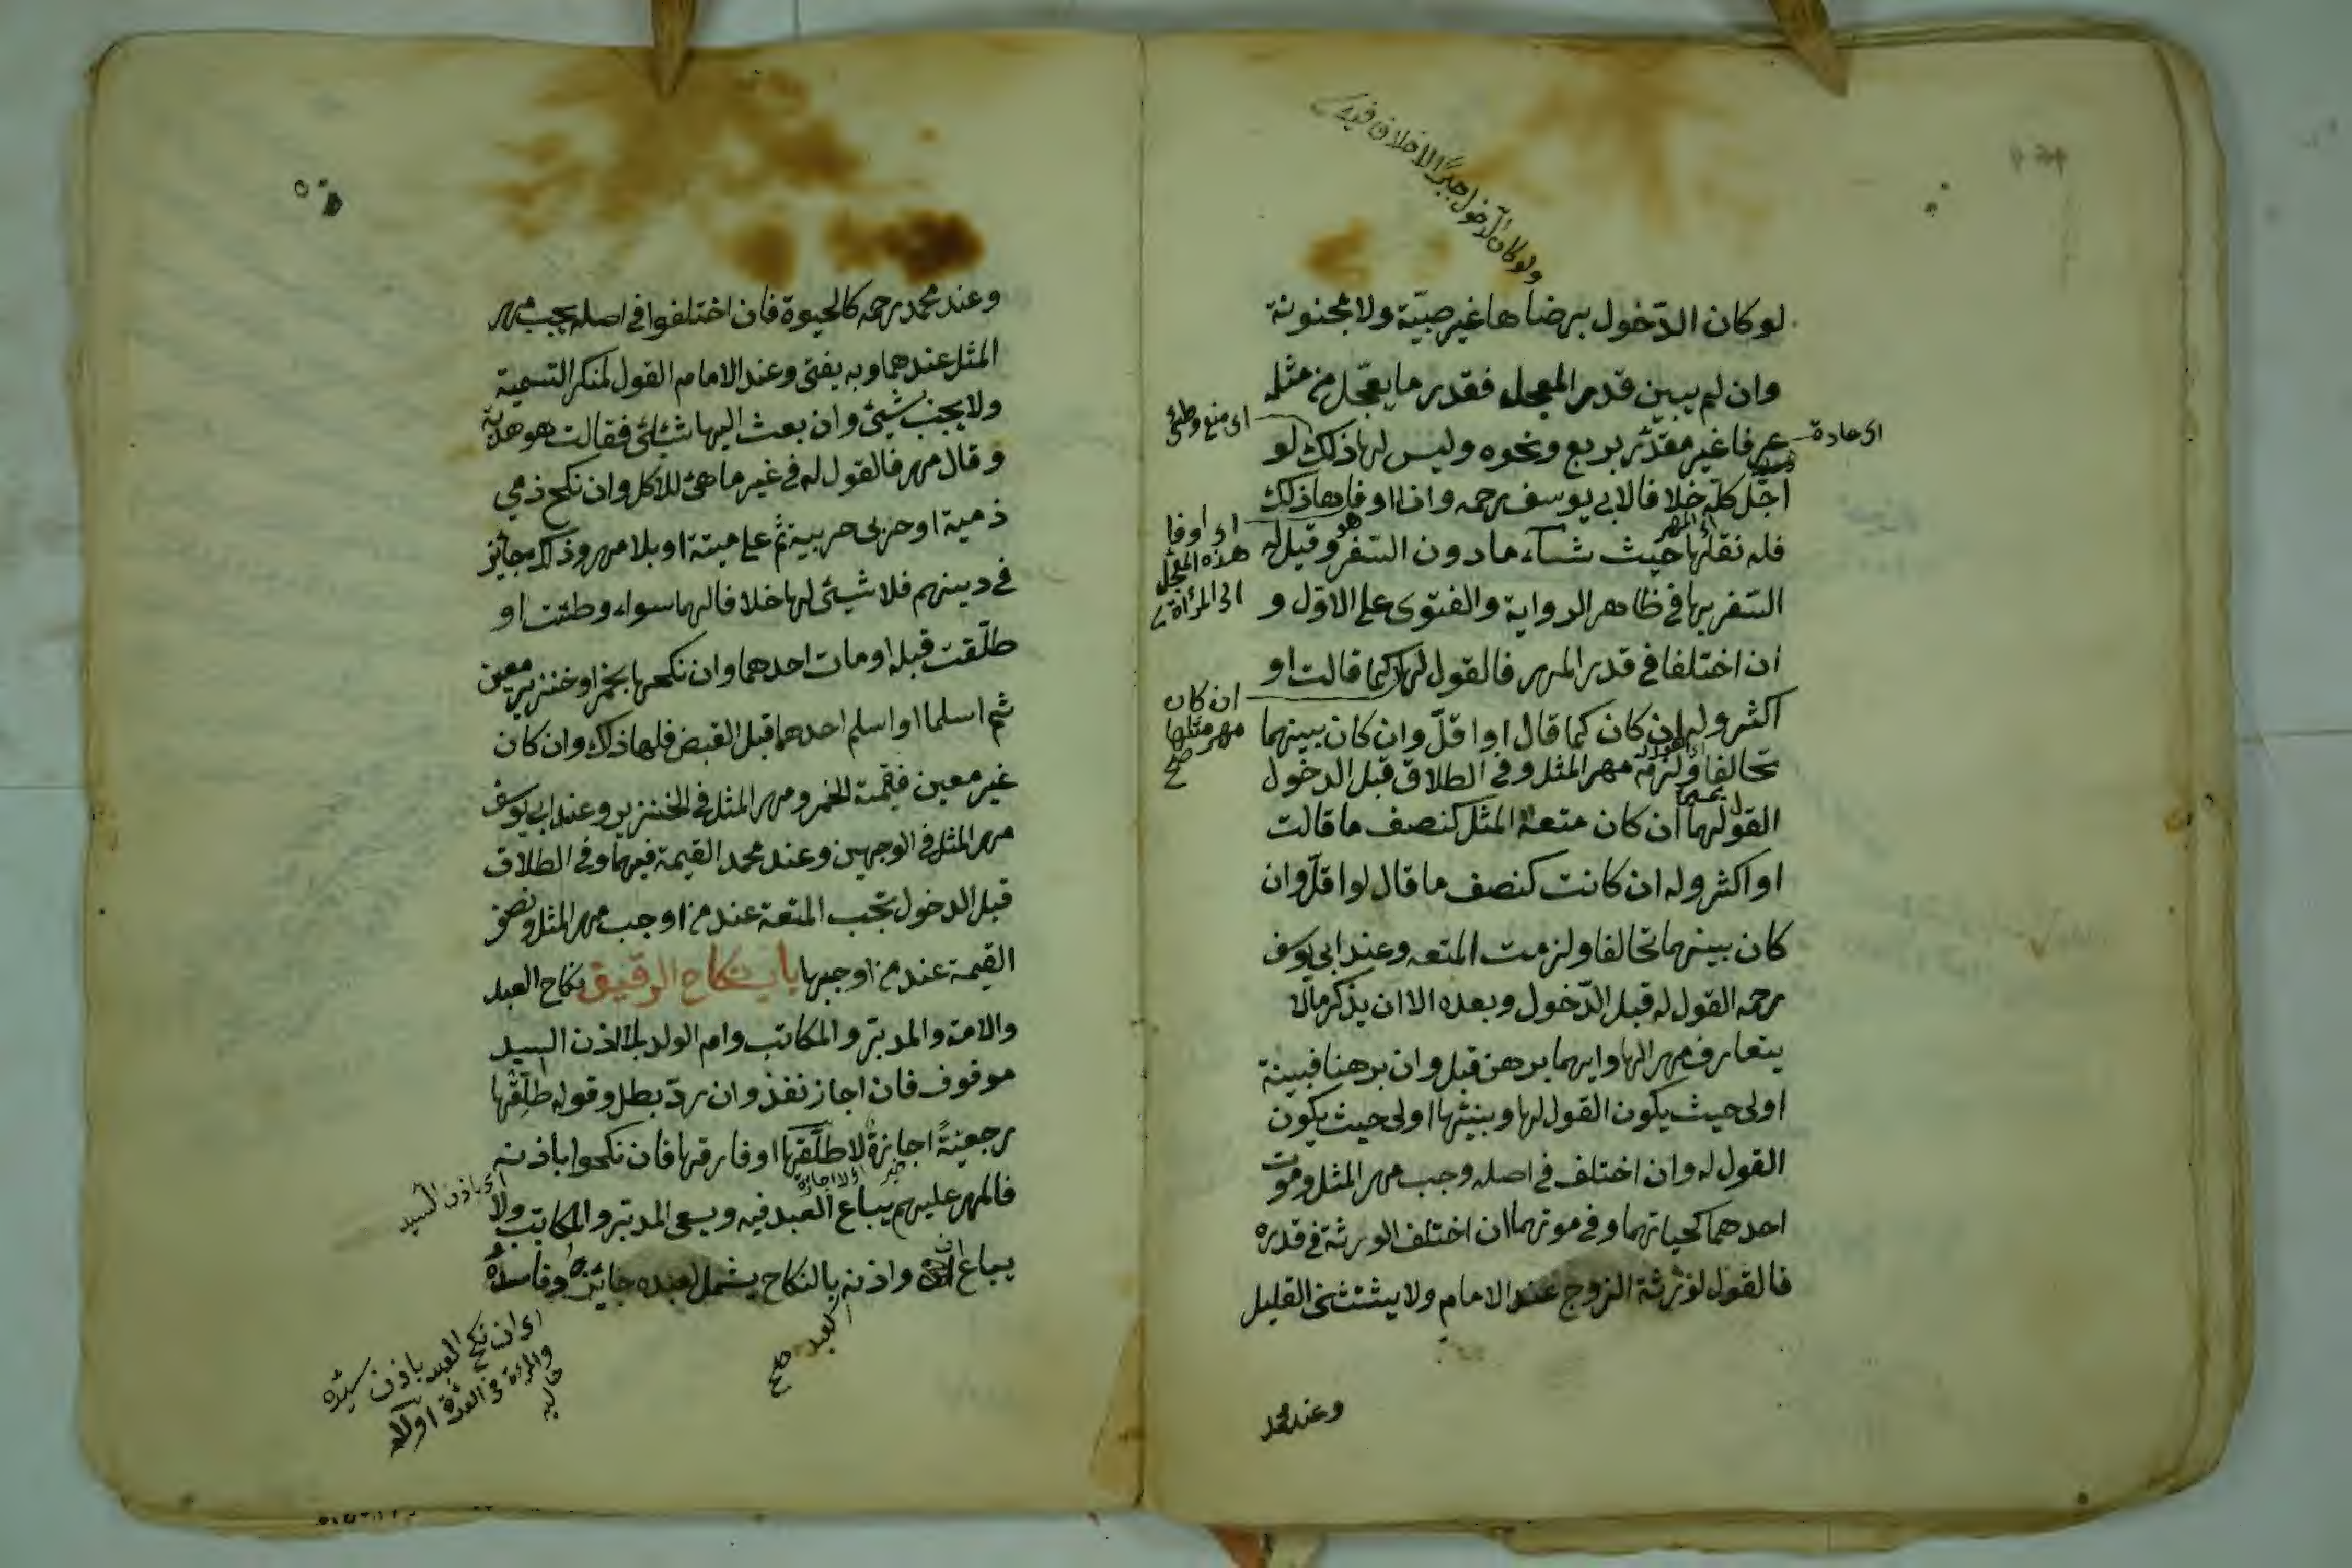 ولو كان الدّخول جبرًا لا خلاف فيه
لو كان الدّخول برضاها غير صبيّة ولا مجنونة
وان لم يبين قدر المعجل فقدر ما يعجّل من مثله
عرفا غير مقدّر بربع ونحوه وليس لها ذلك لو
اى عادة
اى منع وطئ
اجّل كلّه خلافا لابي يوسف رحمه واذا اوفاها ذلك
فله نقلها حيث شاء ما دون السّفر وقيل له
اى المهر
هو
اى اوفا
هذه المعجّل
الى المرأة
السّفر بها في ظاهر الرواية والفتوى على الاوّل و
ان اختلفا في قدر المهر فالقول لها كما قالت او
ان كان
مهر مثلها
صح
اكثر وله ان كان كما قال او اقلّ وان كان بينهما
تحالفا ولزمه مهر المثل وفي الطلاق قبل الدخول
القول لها ان كان متعة المثل كنصف ما قالت
او اكثر وله ان كانت كنصف ما قال لو اقلّ وان
كان بينهما تحالفا ولزمت المتعه وعند ابى يوسف
رحمه القول له قبل الدّخول وبعده الا ان يذكر مالا
يتعارف مهر الها وايهما برهن قبل وان برهنا فبينة
اولى حيث يكون القول لها وبينتها اولى حيث يكون
القول له وان اختلف في اصله وجب مهر المثل وموت
احدهما كحياتهما وفي موتهما ان اختلف الورثة في قدره
فالقول لورثة الزوج عند الامام ولا يستثنى القليل
وعند محمد
وعند محمد رحمه كالحيوة فان اختلفوا في اصله يجب مهر
المثل عندهما وبه يفتى وعند الامام القول لمنكر التسمية
ولا يجب شيئ وان بعث اليها شيئا فقالت هو هدية
وقال مهر فالقول له في غير ما هيئ للاكل وان نكح ذمي
ذمية او حربى حربية ثم على ميتة او بلا مهر وذلك جائز
في دينهم فلا شيئ لها خلافا لهما سواء وطئت او
طلّقت قبله او مات احدهما وان نكحها بخمر او خنزير معين
ثم اسلما او اسلم احدهما قبل القبض فلها ذلك وان كان
غير معين فقيمة الخمر ومهر المثل في الخنزير وعند ابى يوسف
مهر المثل في الوجهين وعند محمد القيمة فيهما وفي الطلاق
قبل الدخول تجب المتعة عند من اوجب مهر المثل ونصف
القيمة عند من اوجبها باب نكاح الرقيق نكاح العبد
والامة والمدبّر والمكاتب وام الولد بلا اذن السيد
موقوف فان اجاز نفذ وان ردّ بطل وقوله طلّقها
رجعيّةً اجازةٌ لا طلّقها او فارقها فان نكحوا باذنه
اى باذن السّيد
اى لا اجازة
فالمهر عليهم يباع العبد فيه ويسعى المدبّر والمكاتب ولا
يباع ان واذنه بالنكاح يشمل لعبده جائزه وفاسده
العبد صح
اى ان نكح العبد باذن سيّده
والمرءة فى العدّة اولا
خاليه